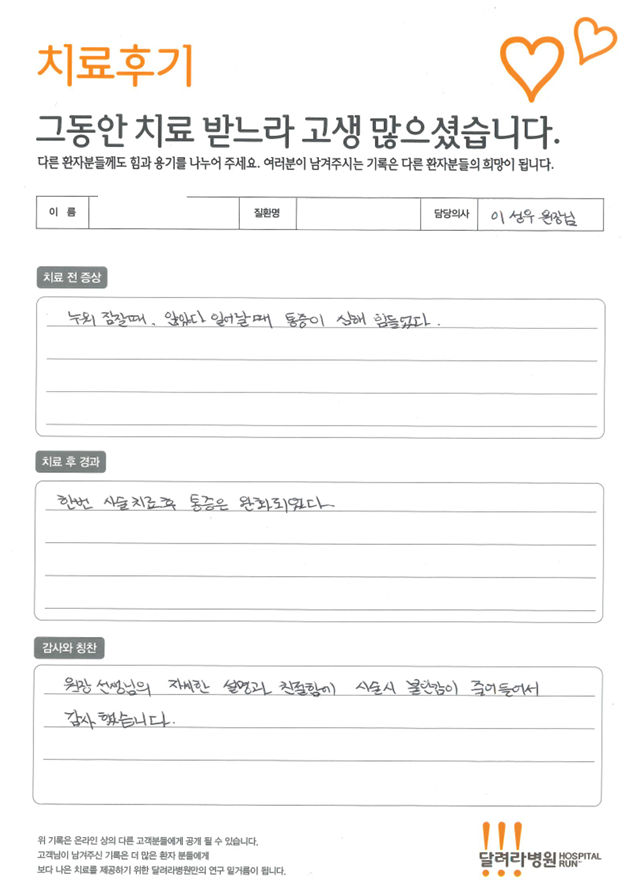 치료후기
그동안 치료 받느라 고생 많으셨습니다.
다른 환자분들께도 힘과 용기를 나누어 주세요. 여러분이 남겨주시는 기록은 다른 환자분들의 희망이 됩니다.
이 름 질환명 담당의사 이성우 원장님
치료 전 증상
누워 잠잘때, 앉았다 일어날때 통증이 심해 힘들었다.
치료 후 경과
한번 시술치료후 통증은 완화되었다.
감사와 칭찬
원장선생님의 자세한 설명과 친절함이 시술시 불안함이 줄어들어서
감사했습니다.
위 기록은 온라인 상의 다른 고객분들에게 공개 될 수 있습니다.
고객님이 남겨주신 기록은 더 많은 환자 분들에게
보다 나은 치료를 제공하기 위한 달려라병원만의 연구 밑거름이 됩니다.
달려라병원 HOSPITAL RUN